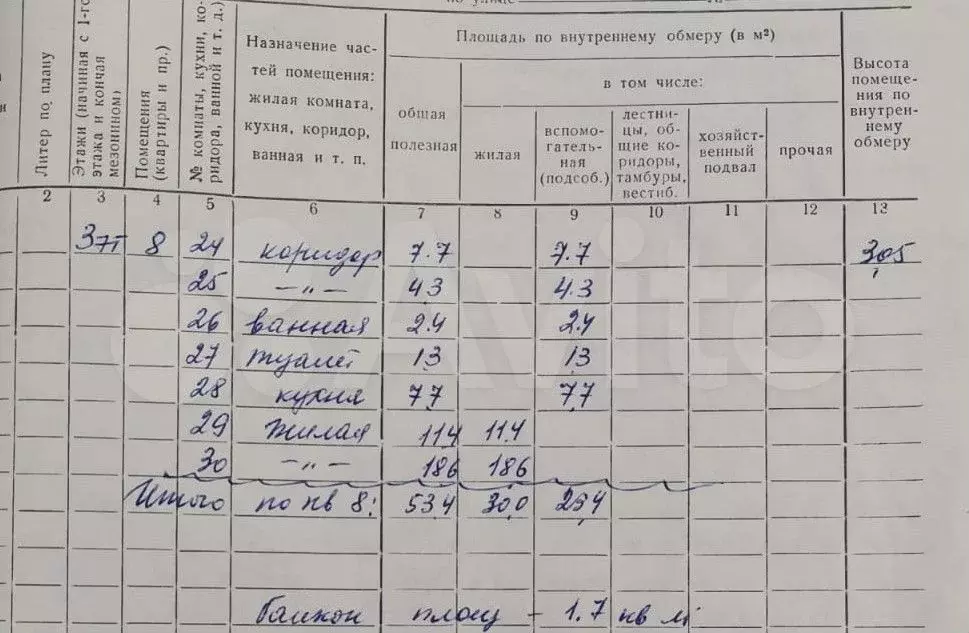 Литер по плану
Этажи (начиная с 1-го этажа и кончая мезонином)
Помещения (квартиры и пр.)
№ комнаты, кухни, коридора, ванной и т. д.)
Назначение час-
тей помещения:
жилая комната,
кухня, коридор,
ванная и т. п.
Площадь по внутреннему обмеру (в м²)
общая
полезная
в том числе:
жилая
вспомо-
гатель-
ная
(подсоб.)
лестни-
цы, об-
щие ко-
ридоры,
тамбуры,
вестиб.
хозяйст-
венный
подвал
прочая
Высота
помеще-
ния по
внутрен-
нему
обмеру
2 3 4 5 6 7 8 9 10 11 12 13
3эт 8 24 коридор 7.7 7.7 3,05
25 —〃— 4.3 4.3
26 ванная 2.4 2.4
27 туалет 1,3 1,3
28 кухня 7,7 7,7
29 жилая 11,4 11,4
30 —〃— 18,6 18,6
Итого по кв 8: 53,4 30,0 23,4
балкон площ - 1.7 кв м
Avito